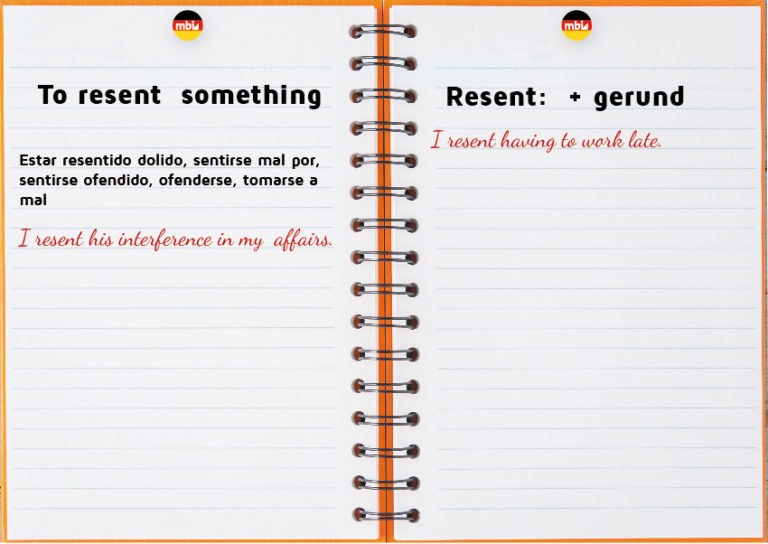 mbi
mbi
To resent something
Estar resentido dolido, sentirse mal por,
sentirse ofendido, ofenderse, tomarse a
mal
I resent his interference in my affairs.
Resent: + gerund
I resent having to work late.